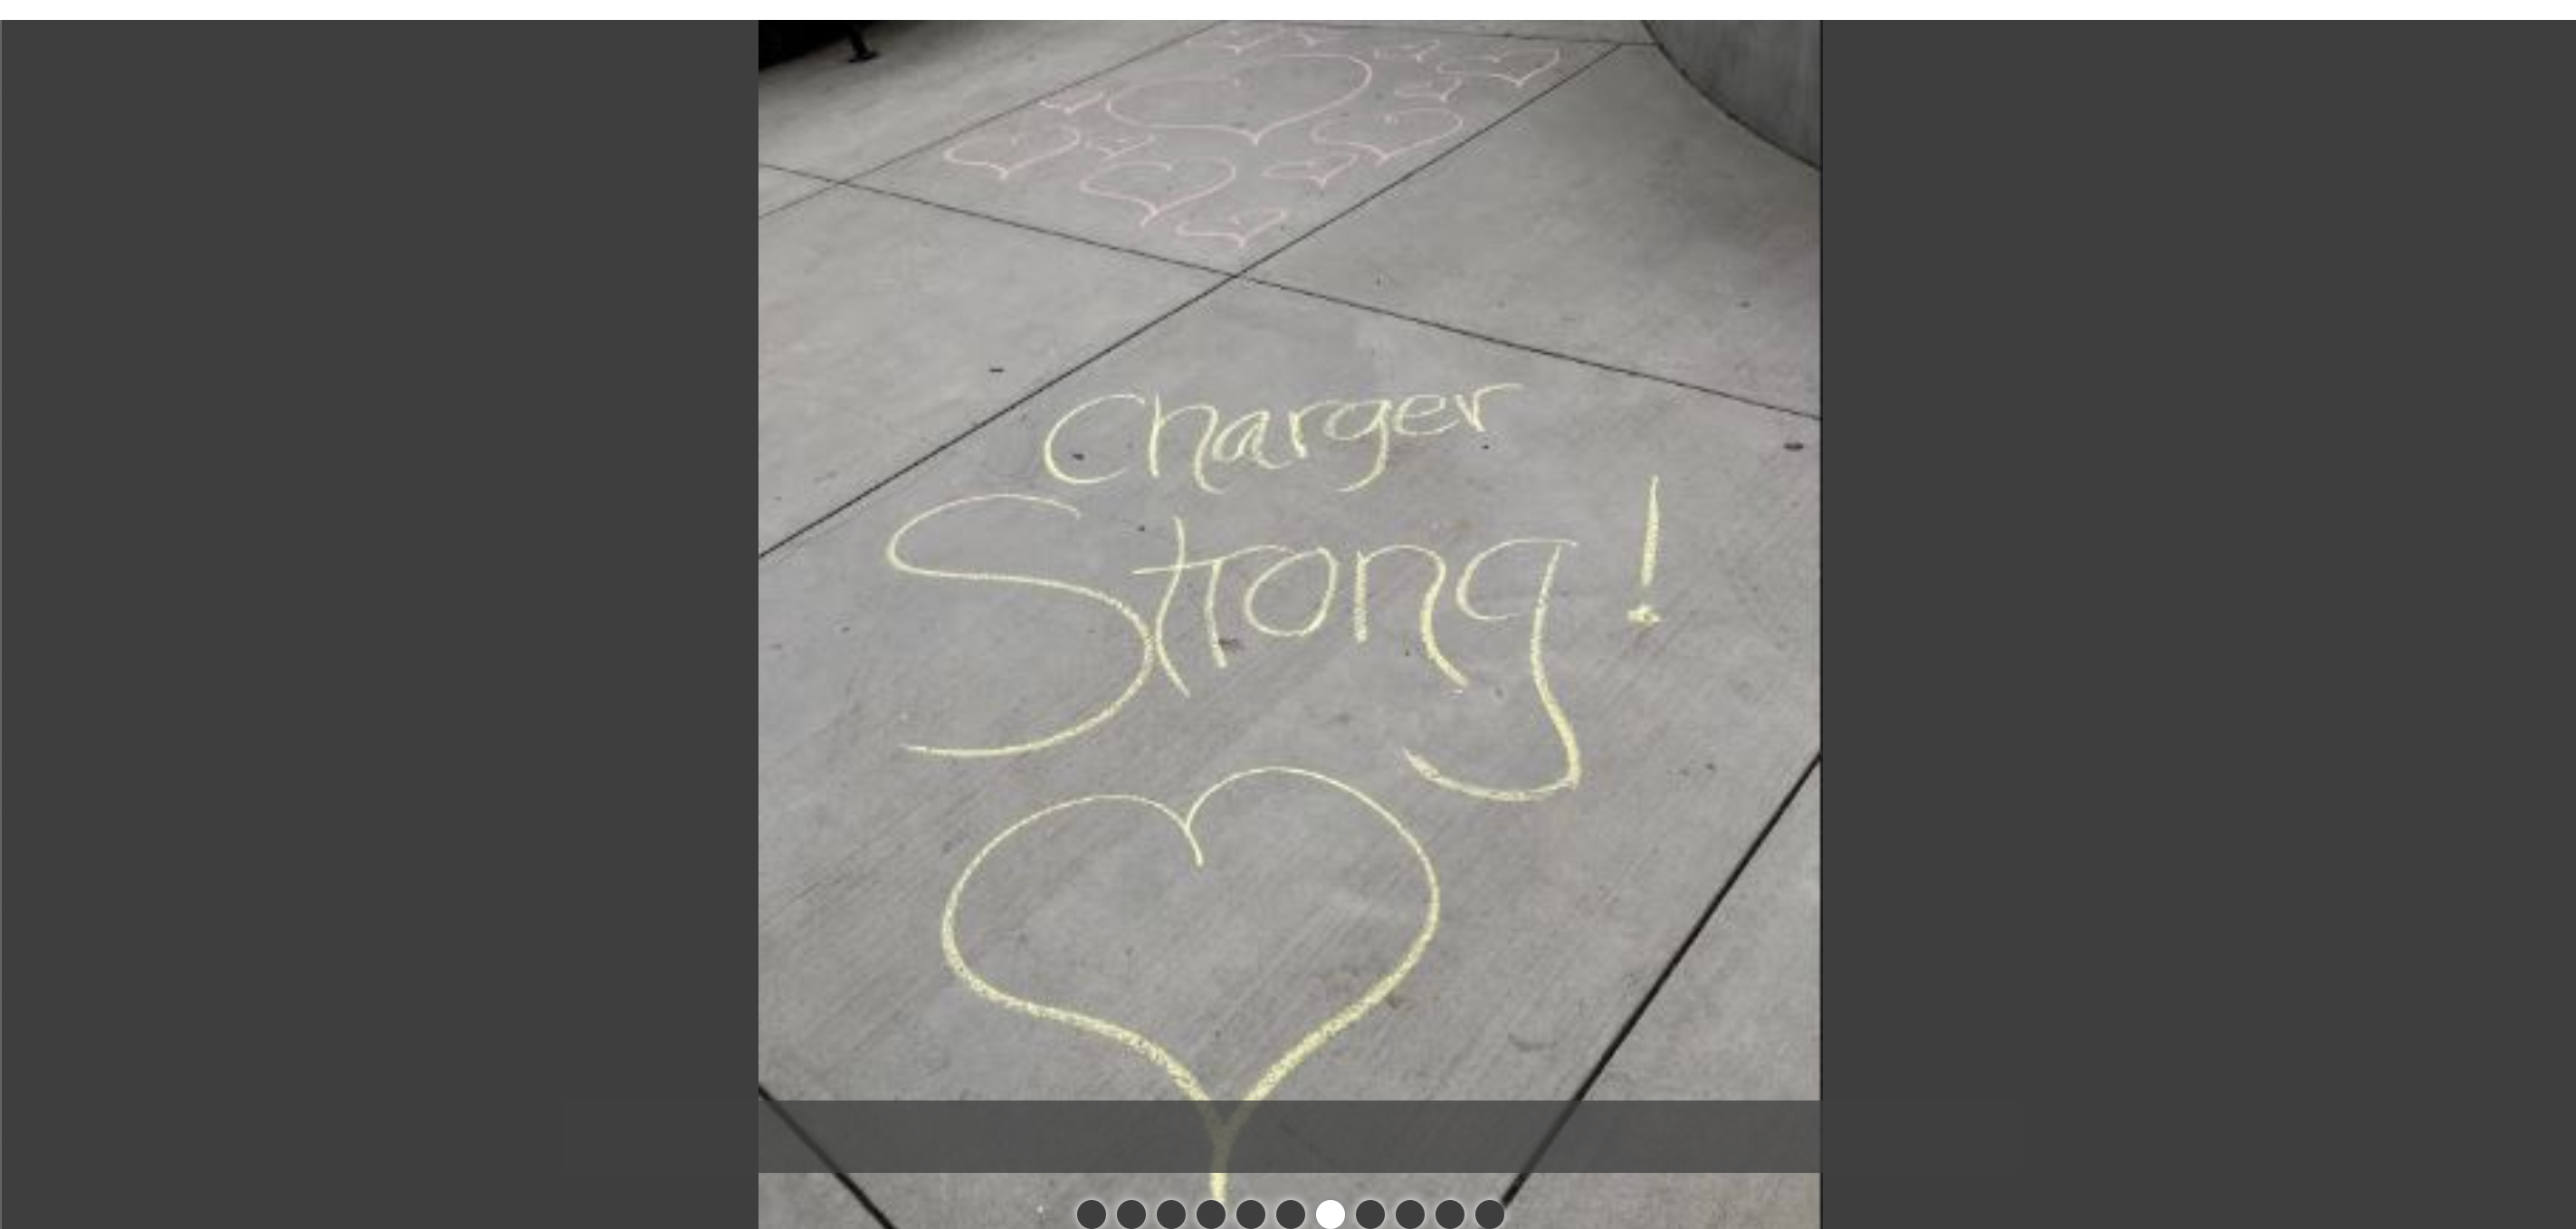 Charger
Strong!